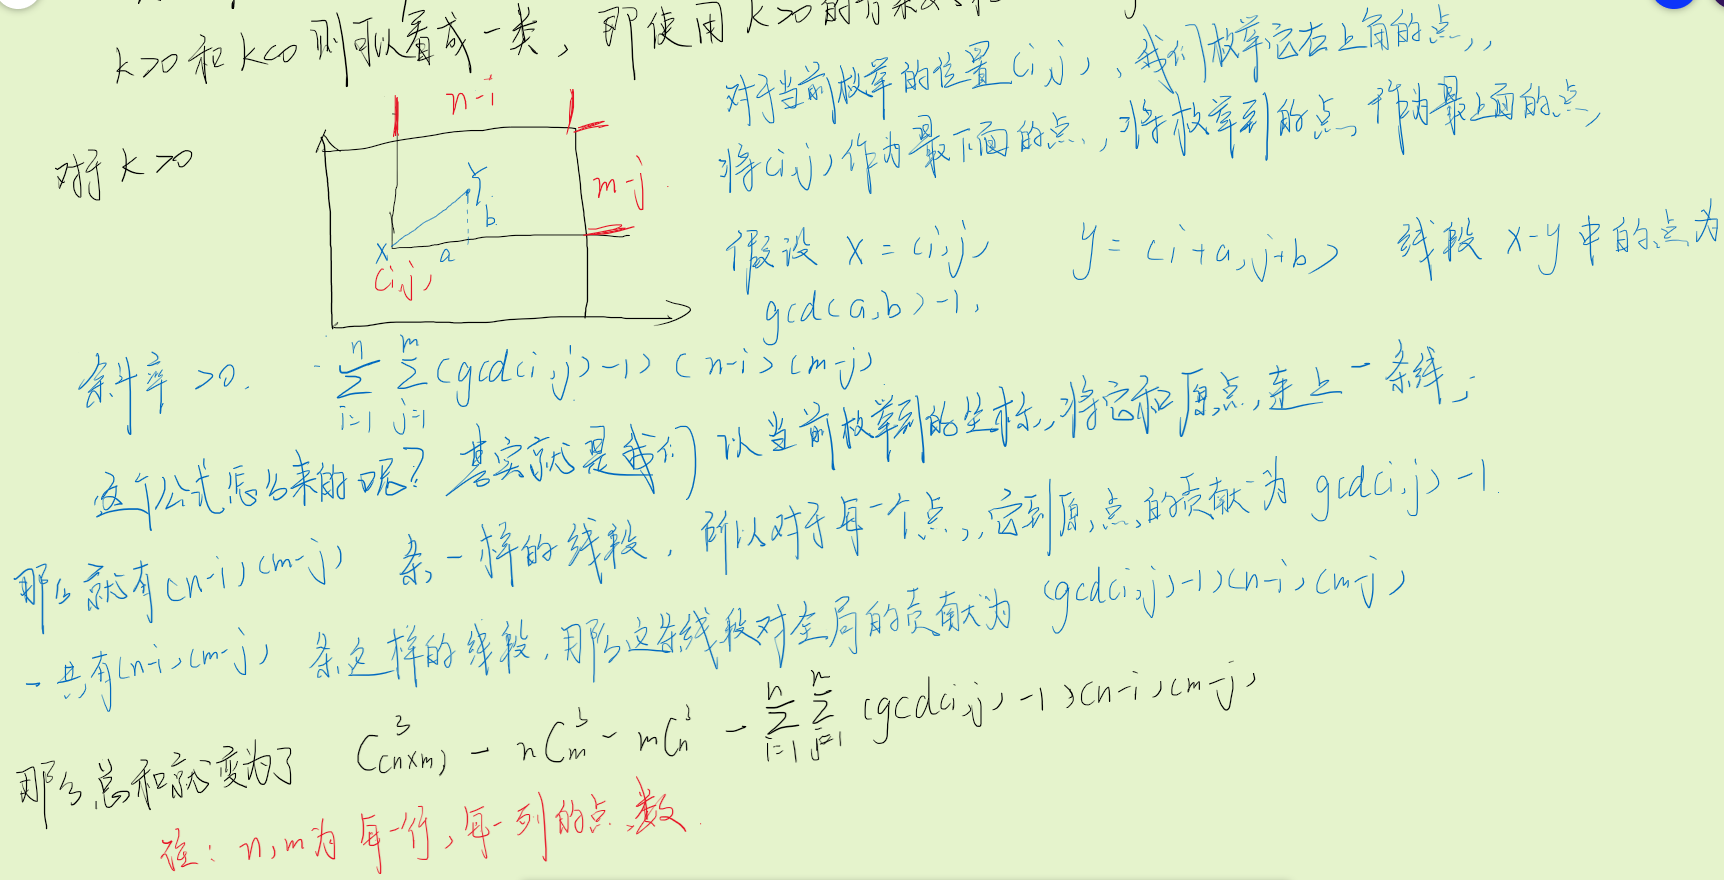 k>0和k<0则可以看成一类，即使用k>0的
n-i
对于当前枚举的位置(i,j)，我们枚举它右上角的点，
将(i,j)作为最下面的点，将枚举到的点作为最上面的点，
对于k>0
m-j
y
b
x
a
(i,j)
假设 x=(i,j) y=(i+a,j+b) 线段 x-y 中的点为
gcd(a,b)-1.
斜率>0. \sum_{i=1}^{n} \sum_{j=1}^{m} (gcd(i,j)-1)(n-i)(m-j)
这个公式怎么来的呢？其实就是我们以当前枚举到的坐标，将它和原点，连上一条线，
那么就有(n-i)(m-j)条一样的线段，所以对于每一个点，它到原点的贡献为gcd(i,j)-1.
一共有(n-i)(m-j)条这样的线段，那么这条线段对全局的贡献为(gcd(i,j)-1)(n-i)(m-j)
那么总和就变为了 C_{(n×m)}^{3} - nC_{m}^{3} - mC_{n}^{3} - \sum_{i=1}^{n} \sum_{j=1}^{n} (gcd(i,j)-1)(n-i)(m-j)
注：n,m为每一行，每一列的点数.